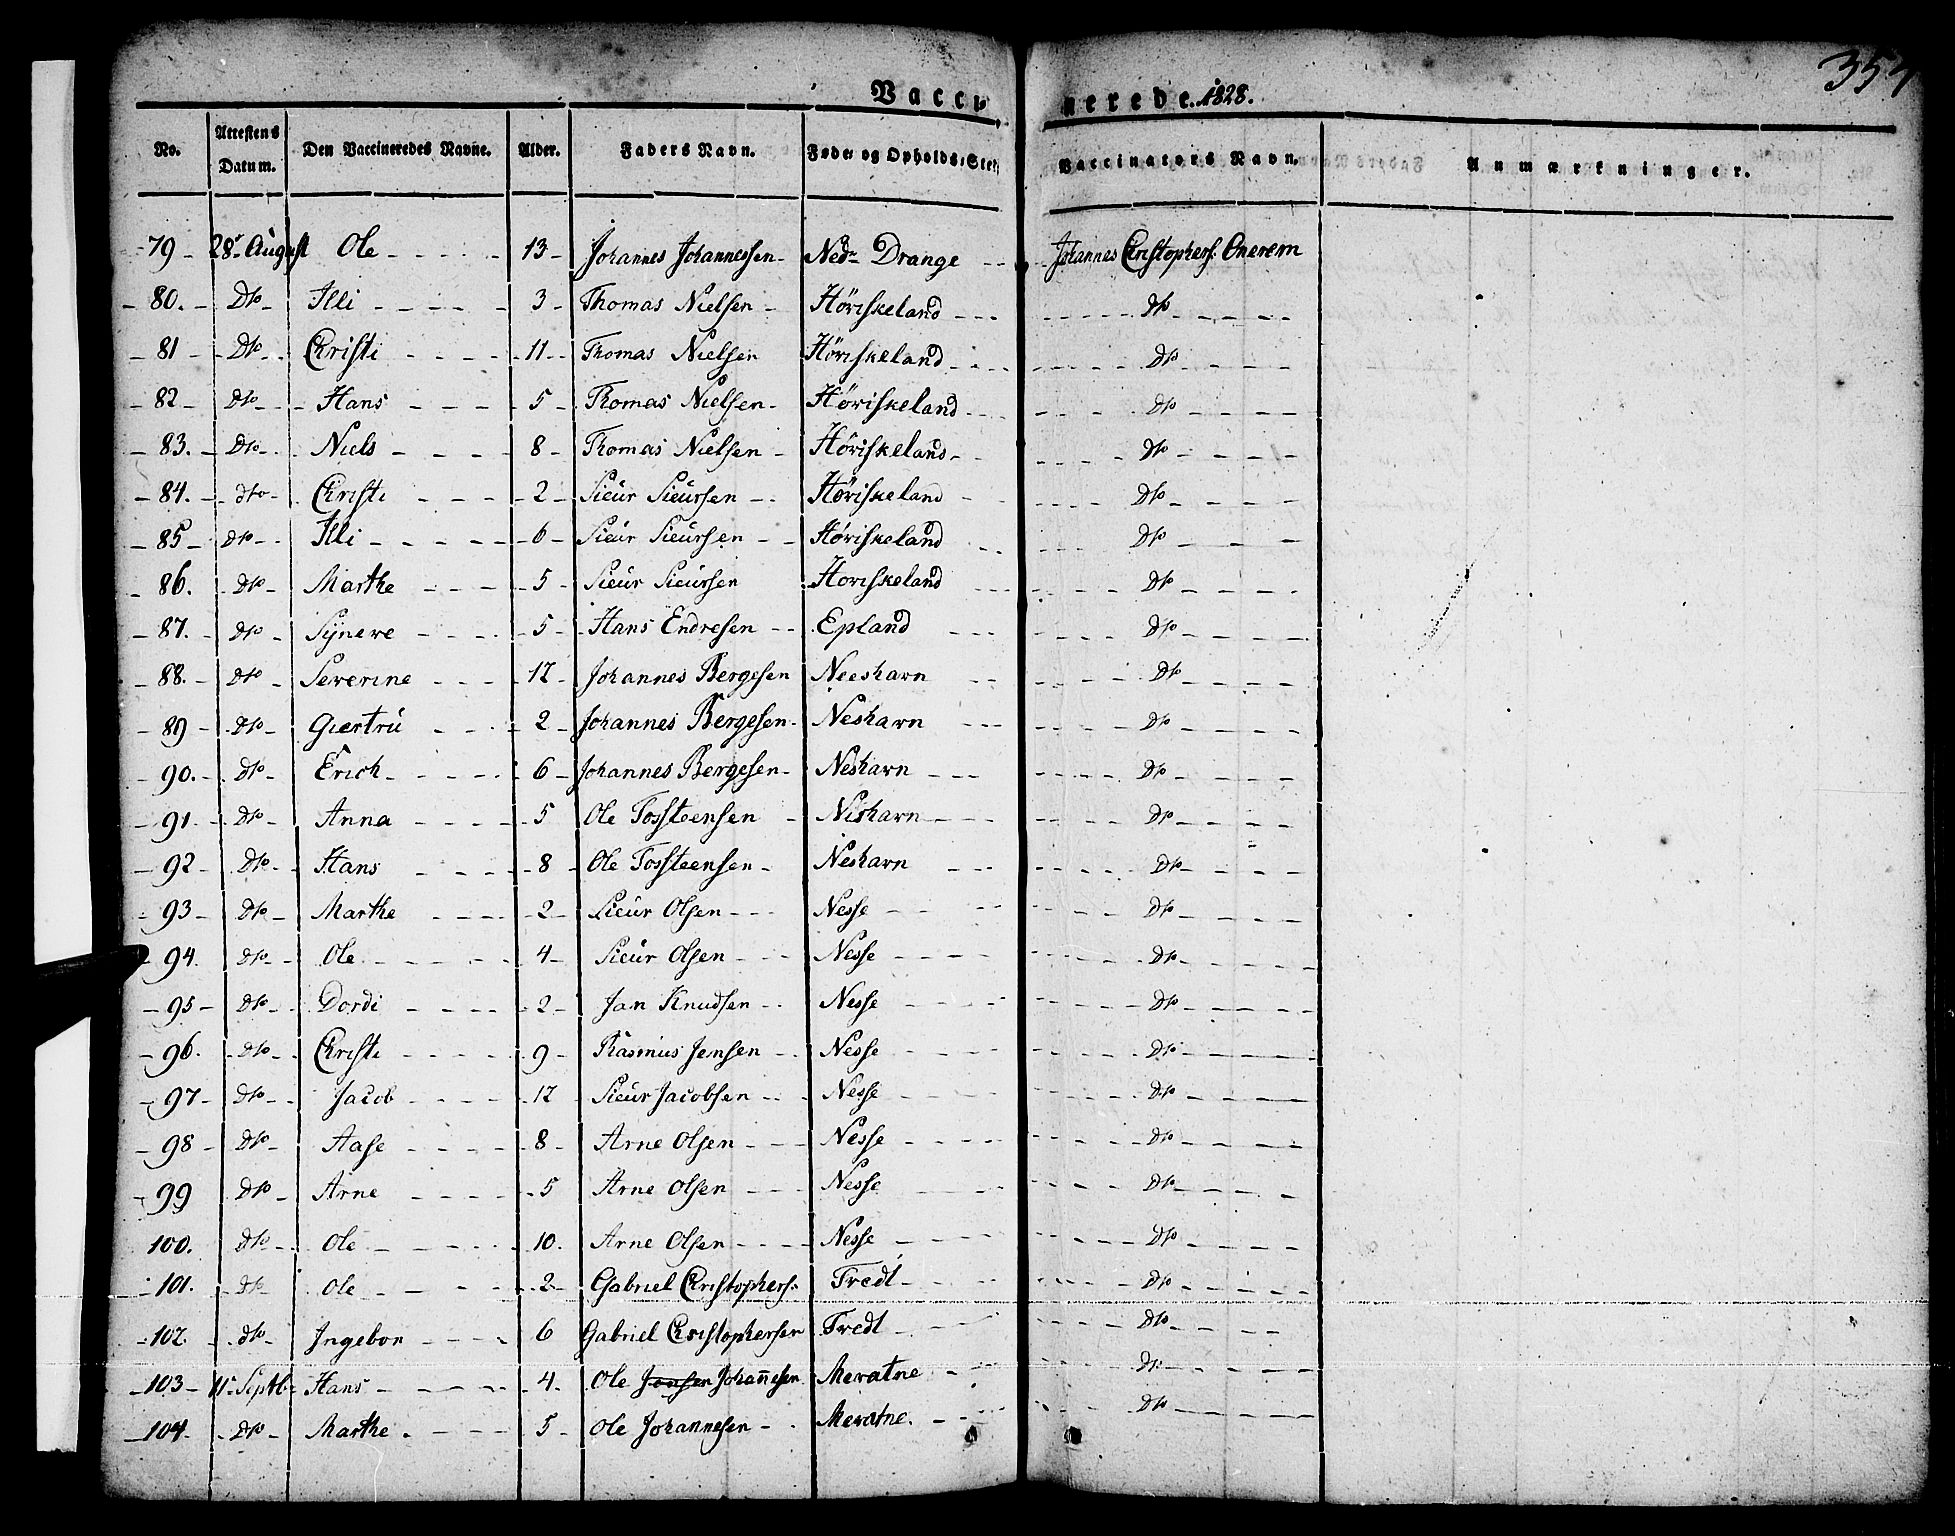 Vaccinerede. 1828.
No. | Attestens Datum. | Den Vaccineredes Navne. | Alder. | Faders Navn. | Føde- og Opholds-Sted | Vaccinators Navn. | Anmærkninger.
79 - 28 August Ole - 13 - Johannes Johannessen - Nedr Drange - Johannes Christophers. Onerem
80. - Dto - Illi - 3 - Thomas Nielsen - Höriskeland - Dto
81 - Dto - Christi - 11 - Thomas Nielsen Höriskeland - Dto
82 - Dto - Hans - 5 - Thomas Nielsen - Höriskeland - Dto
83. - Dto - Niels - 8 - Thomas Nielsen - Höriskeland - Dto
84. - Dto - Christi - 2 - Sieur Sieursen - Höriskeland - Dto
85 - Dto - Illi - 6 - Sieur Sieursen - Høriskeland - Dto
86. - Dto - Marthe - 5 - Sieur Sieursen Horiskeland - Dto
87. - Dto - Syneve - 5 - Hans Endresen - Epland - Dto
88. - Dto - Severine - 12 - Johannes Bergesen Neeshavn - Dto
89 - Dto - Giertru - 2 - Johannes Bergesen - Neshavn - Dto
90. - Dto - Erich - 6 - Johannes Bergesen - Neshavn - Dto
91 - Dto - Anna - 5 Ole Tossteensen - Neshavn - Dto
92 - Dto - Hans - 8 - Ole Tossteensen - Neshavn - Dto
93 - Dto - Marthe - 2 - Sieur Olsen - Nesse - Dto
94. Dto - Ole - 4 - Sieur Olsen - Nesse - Dto
95 - Dto - Dordi - 2 - Jan Knudsen - Nesse - Dto
96. - Dto - Christi - 9 - Rasmus Jensen - Nesse - Dto
97 - Dto - Jacob - 12 Sieur Jacobsen - Nesse - Dto
98 - Dto - Aase - 8 - Arne Olsen - Nesse - Dto
99 Dto - Arne - 5 Arne Olsen - Nesse - Dto
100. Dto - Ole - 10. Arne Olsen - Nesse - Dto
101. - Dto - Ole - 2 - Gabriel Christophers. Tredt - Dto
102. - Dto - Ingebor - 6 Gabriel Christophersen Tredt - Dto
103 - 11 Septb. Hans - 4 - Ole Jansen Johannesen Meratne - Dto
104. - Dto - Marthe - 5 - Ole Johannesen - Meratne. - Dto